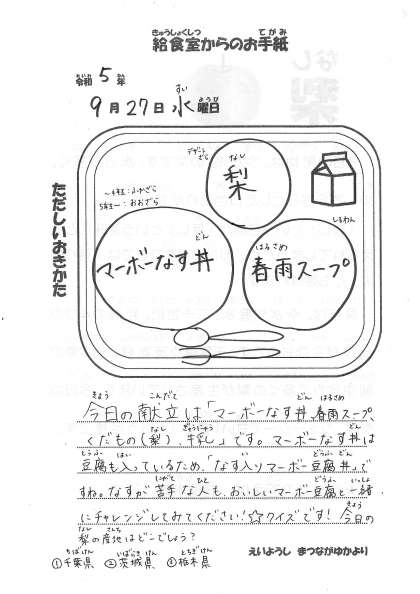 きゅうしょくしつ てがみ
給食室からのお手紙
れいわ ねん
令和 5 年
すい ようび
9月27日水曜日
ただしいおきかた
デザートざら
なし
梨
～4年生：ふかざら
5年生～：おおざら
どん
マーボーなす丼
しるわん
はるさめ
春雨スープ
きょう こんだて どん はるさめ
今日の献立は「マーボーなす丼、春雨スープ、
なし ぎゅうにゅう どん
くだもの(梨)、牛乳」です。マーボーなす丼は
とうふ はい い どうふ どん
豆腐も入っているため、「なす入りマーボー豆腐丼」で
にがて ひと どうふ いっしょ
すね。なすが苦手な人も、おいしいマーボー豆腐と一緒
きょう
にチャレンジしてみてください!☆クイズです!今日の
なし さんち
梨の産地はどこでしょう?
ちばけん いばらきけん とちぎけん
①千葉県 ②茨城県 ③栃木県
えいようし まつながゆかより